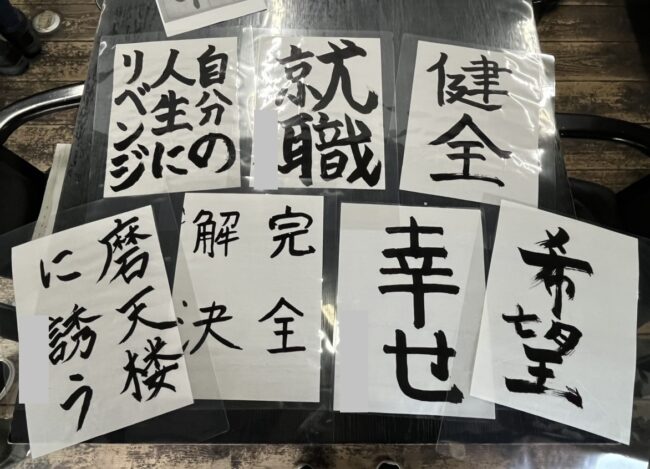 自分の
人生に
リベンジ
就
職
健
全
磨天楼
に誘う
完全
解決
幸
せ
希
望